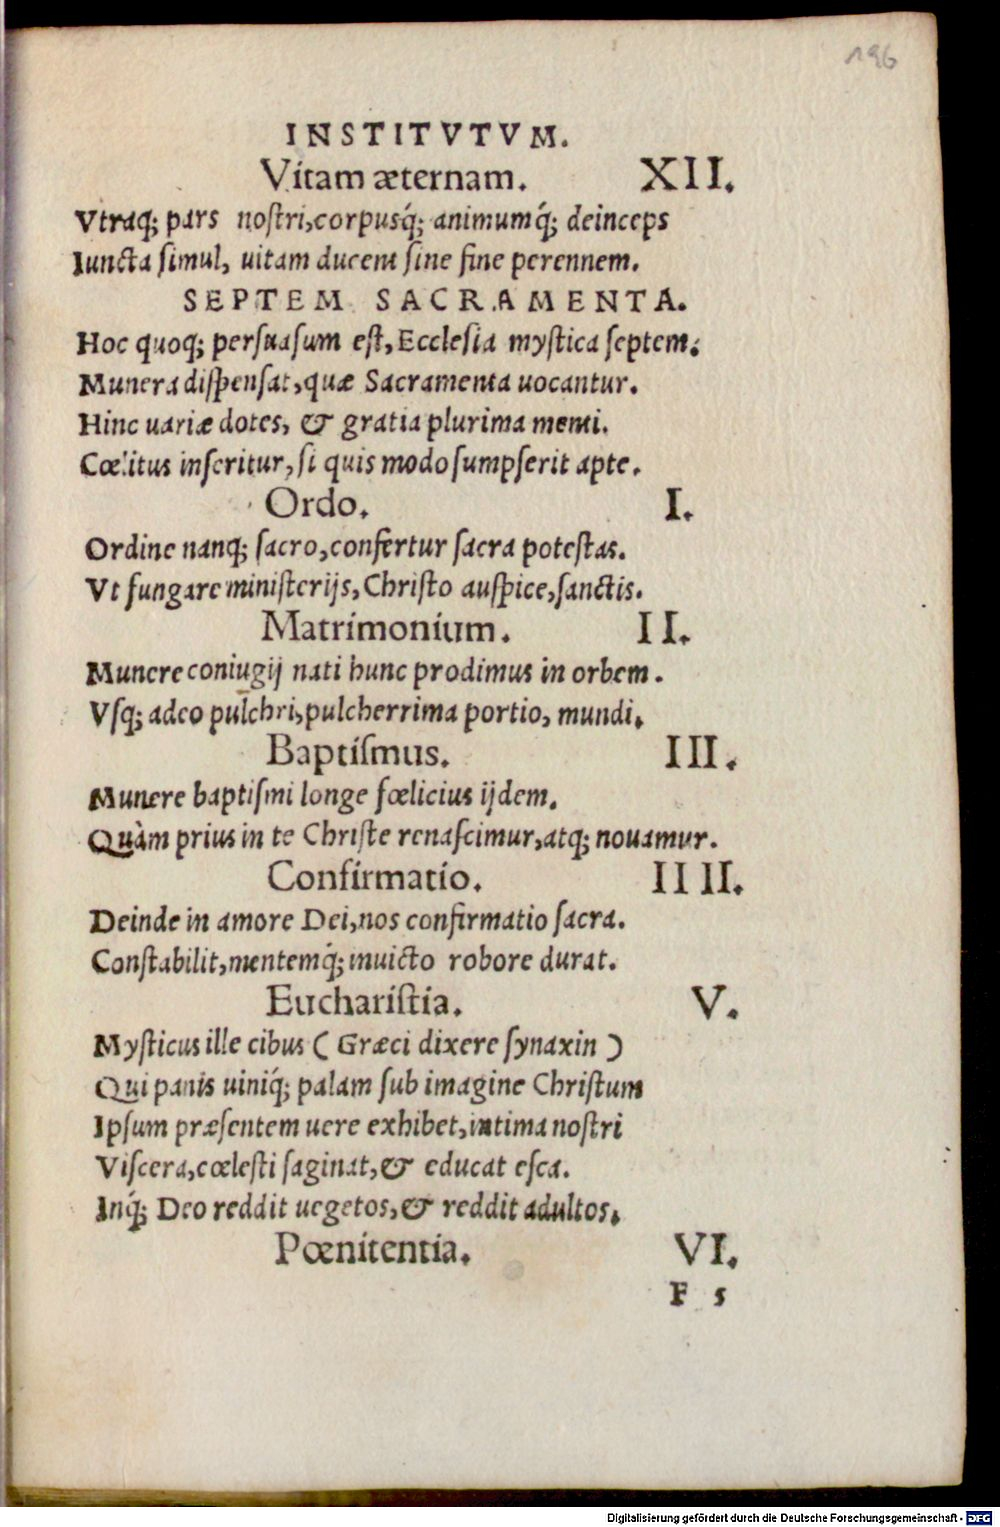 196
INSTITVTVM.
Vitam æternam. XII.
Vtraq; pars nostri, corpusq́; animumq́; deinceps
Iuncta simul, uitam ducent sine fine perennem.
SEPTEM SACRAMENTA.
Hoc quoq; persuasum est, Ecclesia mystica septem.
Munera dispensat, quæ Sacramenta uocantur.
Hinc uariæ dotes, & gratia plurima menti.
Cœlitus inseritur, si quis modo sumpserit apte.
Ordo. I.
Ordine nanq; sacro, confertur sacra potestas.
Vt fungare ministerijs, Christo auspice, sanctis.
Matrimonium. II.
Munere coniugij nati hunc prodimus in orbem.
Vsq; adeo pulchri, pulcherrima portio, mundi.
Baptismus. III.
Munere baptismi longe fœlicius ijdem.
Quàm prius in te Christe renascimur, atq; nouamur.
Confirmatio. IIII.
Deinde in amore Dei, nos confirmatio sacra.
Constabilit, mentemq́; inuicto robore durat.
Eucharistia. V.
Mysticus ille cibus (Græci dixere synaxin)
Qui panis uiniq́; palam sub imagine Christum
Ipsum præsentem uere exhibet, intima nostri
Viscera, cœlesti saginat, & educat esca.
Inq́; Deo reddit uegetos, & reddit adultos.
Pœnitentia. VI.
F 5
Digitalisierung gefördert durch die Deutsche Forschungsgemeinschaft - DFG